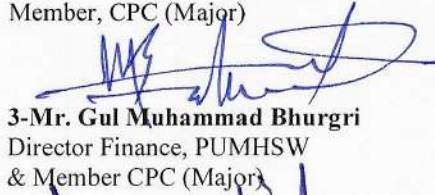 Member, CPC (Major)
3-Mr. Gul Muhammad Bhurgri
Director Finance, PUMHSW
& Member CPC (Major)